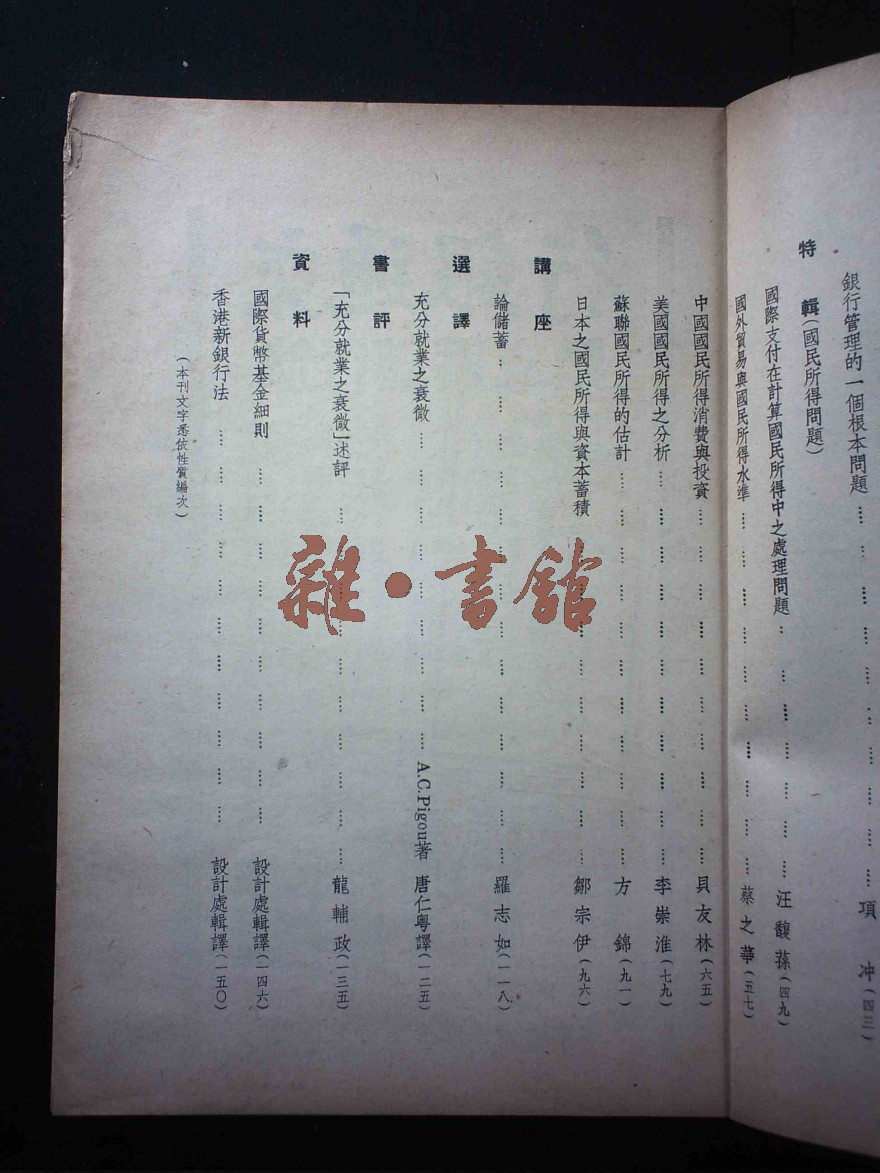 銀行管理的一個根本問題 項冲(四三)
特輯(國民所得問題)
國際支付在計算國民所得中之處理問題 汪馥蓀(四九)
國外貿易與國民所得水準 蔡之華(五七)
中國國民所得消費與投資 貝友林(六五)
美國國民所得之分析 李崇淮(七九)
蘇聯國民所得的估計 方錦(九一)
日本之國民所得與資本蓄積 鄒宗伊(九六)
講座
論儲蓄 羅志如(一一八)
選譯
充分就業之衰微 A.C.Pigou著 唐仁粵譯(一二五)
書評
「充分就業之衰微」述評 龍輔政(一三五)
資料
國際貨幣基金細則 設計處輯譯(一四六)
香港新銀行法 設計處輯譯(一五〇)
(本刊文字悉依性質編次)
雜·書館